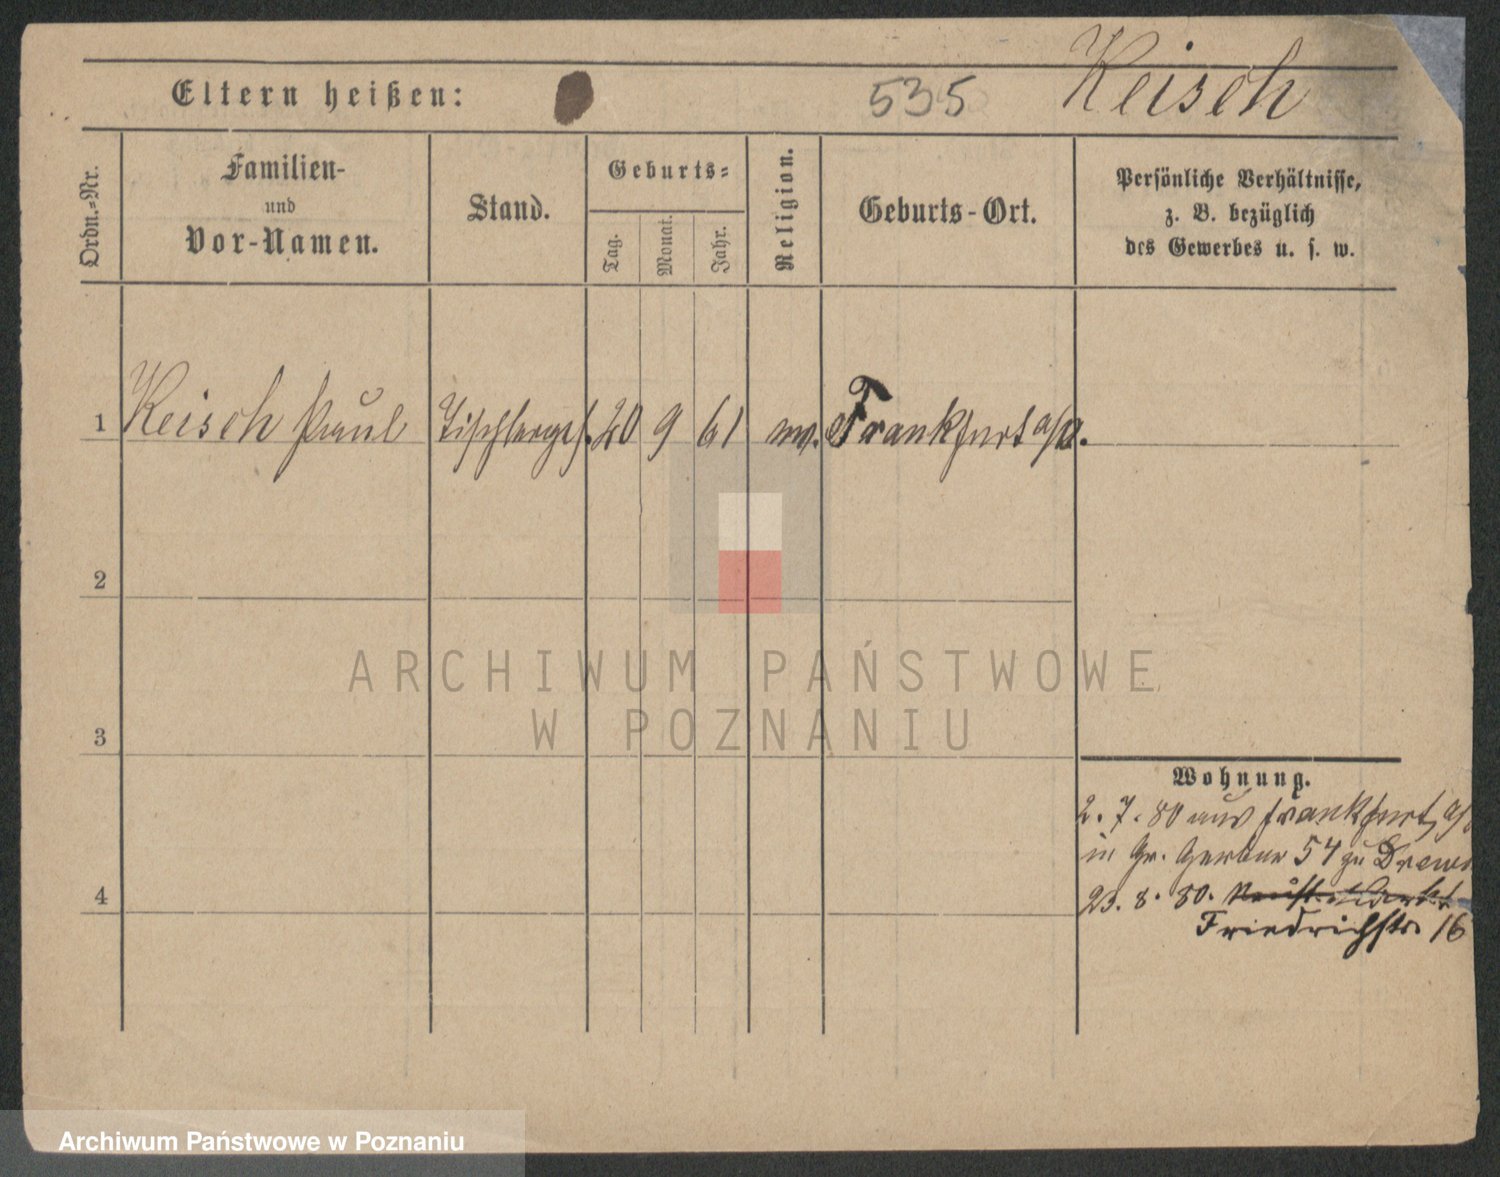 Eltern heißen: 535 Keisch
Ordn.-Nr.
Familien-
und
Vor-Namen.
Stand.
Geburts-
Tag.
Monat.
Jahr.
Religion.
Geburts-Ort.
Persönliche Verhältnisse,
z. B. bezüglich
des Gewerbes u. s. w.
1 Keisch Paul Tischlerges. 20 9 61 ev. Frankfurt a/O.
2
ARCHIWUM PAŃSTWOWE
W POZNANIU
3
Wohnung.
2. 7. 80 aus Frankfurt a/
in Gr. Gerber 54 zu Drews
4
23. 8. 80. Neust. Markt
Friedrichstr. 16
Archiwum Państwowe w Poznaniu